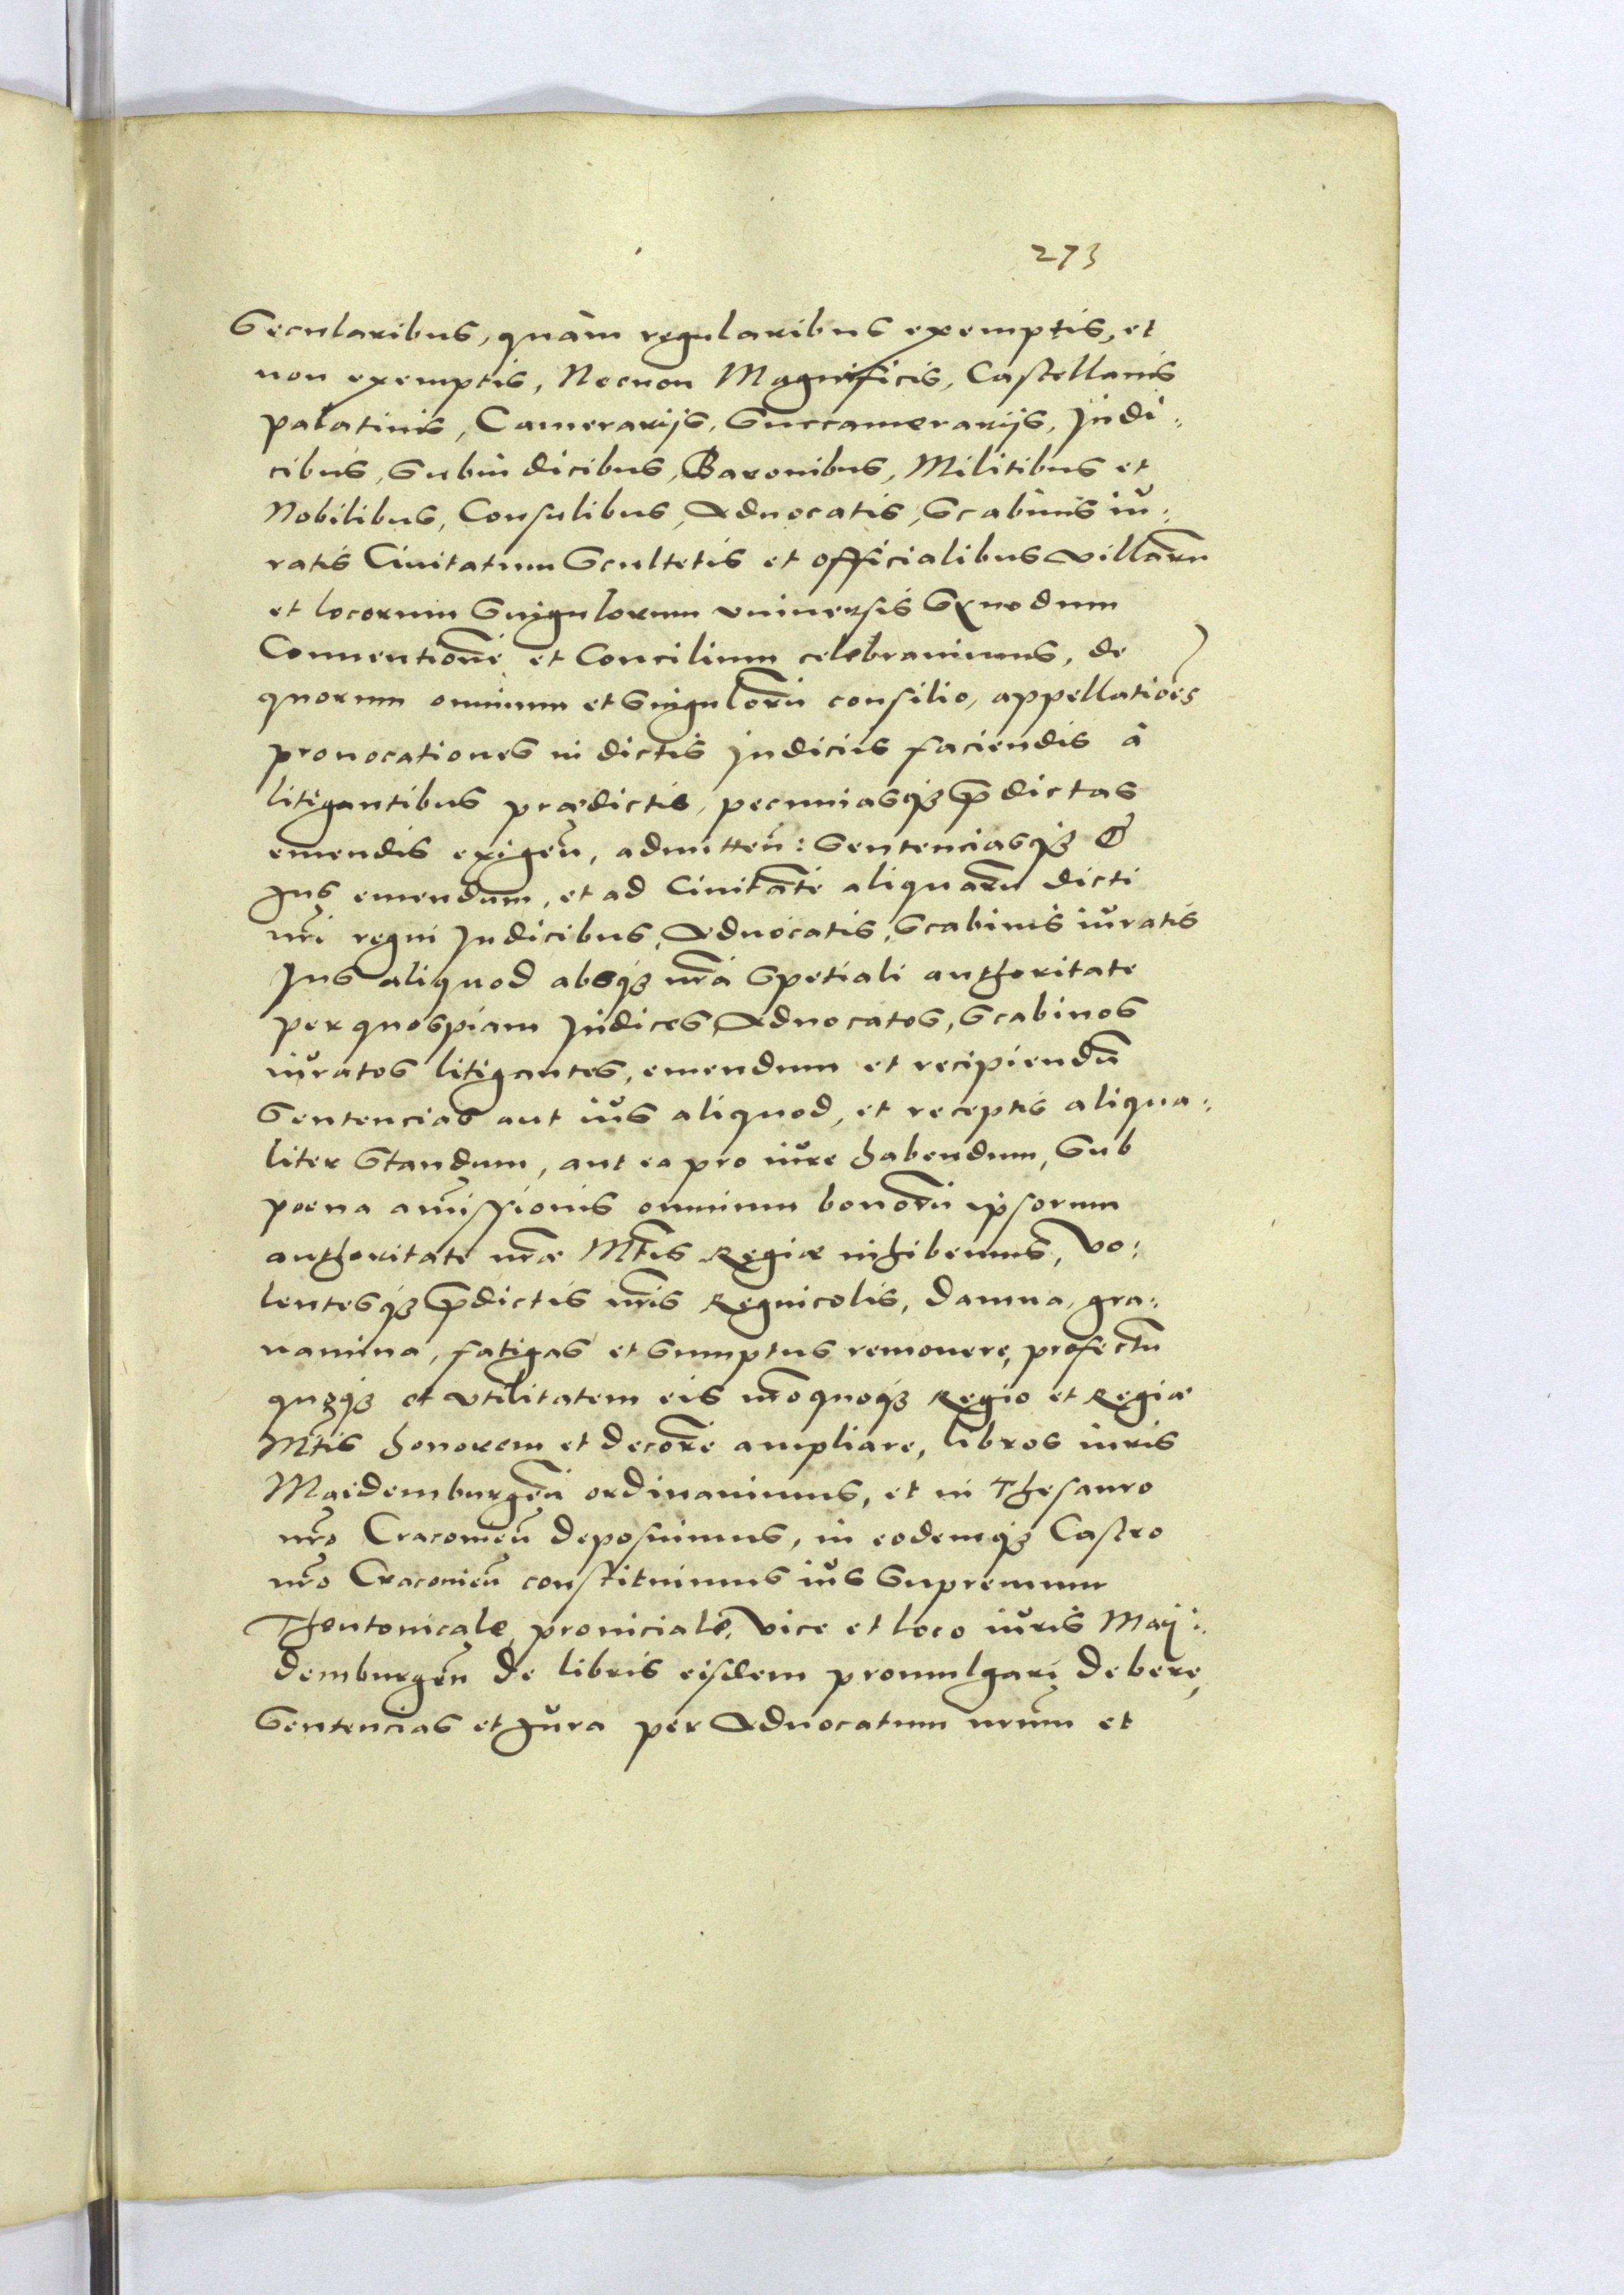 273
Secularibus, quàm regularibus exemptis, et
non exemptis, Necnon Magnificis, Castellanis
palatinis, Camerarijs, Succamerarijs, Judi:
cibus, Subiudicibus, Baronibus, Militibus et
Nobilibus, Consulibus, Aduocatis, Scabinis iu:
ratis Ciuitatum Scultetis et officialibus villarũ
et locorum Singulorum vniuersis Synodum
Conuentionẽ et Concilium celebrauimus, de
quorum omnium et Singulorũ consilio, appellatioẽs
prouocationes in dictis Judicijs faciendis à
litigantibus prædictis, pecuniasq₃ p̃dictas
emendis exigeñ, admitteñ: Sentenciasq₃ &
Jus emendum, et ad Ciuitatẽ aliquarũ dicti
nr̃i regni Judicibus, Aduocatis, Scabinis iuratis
Jus aliquod absq₃ nr̃a Spetiali authoritate
per quospiam Judices, Aduocatos, Scabinos
iuratos litigantes, emendum et recipiendũ
Sentencias aut ius aliquod, et receptis aliqua:
liter Standum, aut ea pro iure habendum, Sub
poena amissionis omnium bonorũ ipsorum
authoritate nr̃æ Mt̃is Regiæ inhibemus, Vo:
lentesq₃ p̃dictis nr̃is Regnicolis, damna, gra:
uamina, fatigas et Sumptus remouere, profectũ
quoq₃ et vtilitatem eis nr̃o quoq₃ Regio et Regiæ
Mt̃is honorem et decorẽ ampliare, libros iuris
Maidemburgeñ ordinauimus, et in Thesauro
nr̃o Cracouieñ deposuimus, in eodemq₃ Castro
nr̃o Cracouieñ constituimus ius Supremum
Theutonicale, prouiciale, Vice et loco iuris May:
demburgeñ de libris eisdem promulgari debere,
Sentencias et Jura per Aduocatum nr̃um et